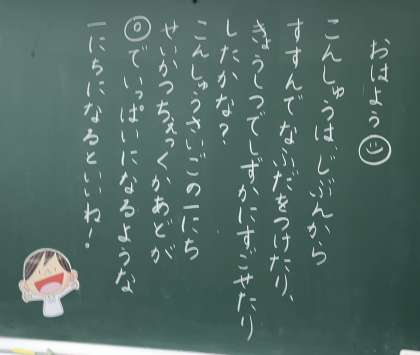 おはよう☺
こんしゅうは、じぶんから
すすんでなふだをつけたり、
きょうしつでしずかにすごせたり
したかな？
こんしゅうさいごの一にち
せいかつちぇっくかあどが
◎でいっぱいになるような
一にちになるといいね！